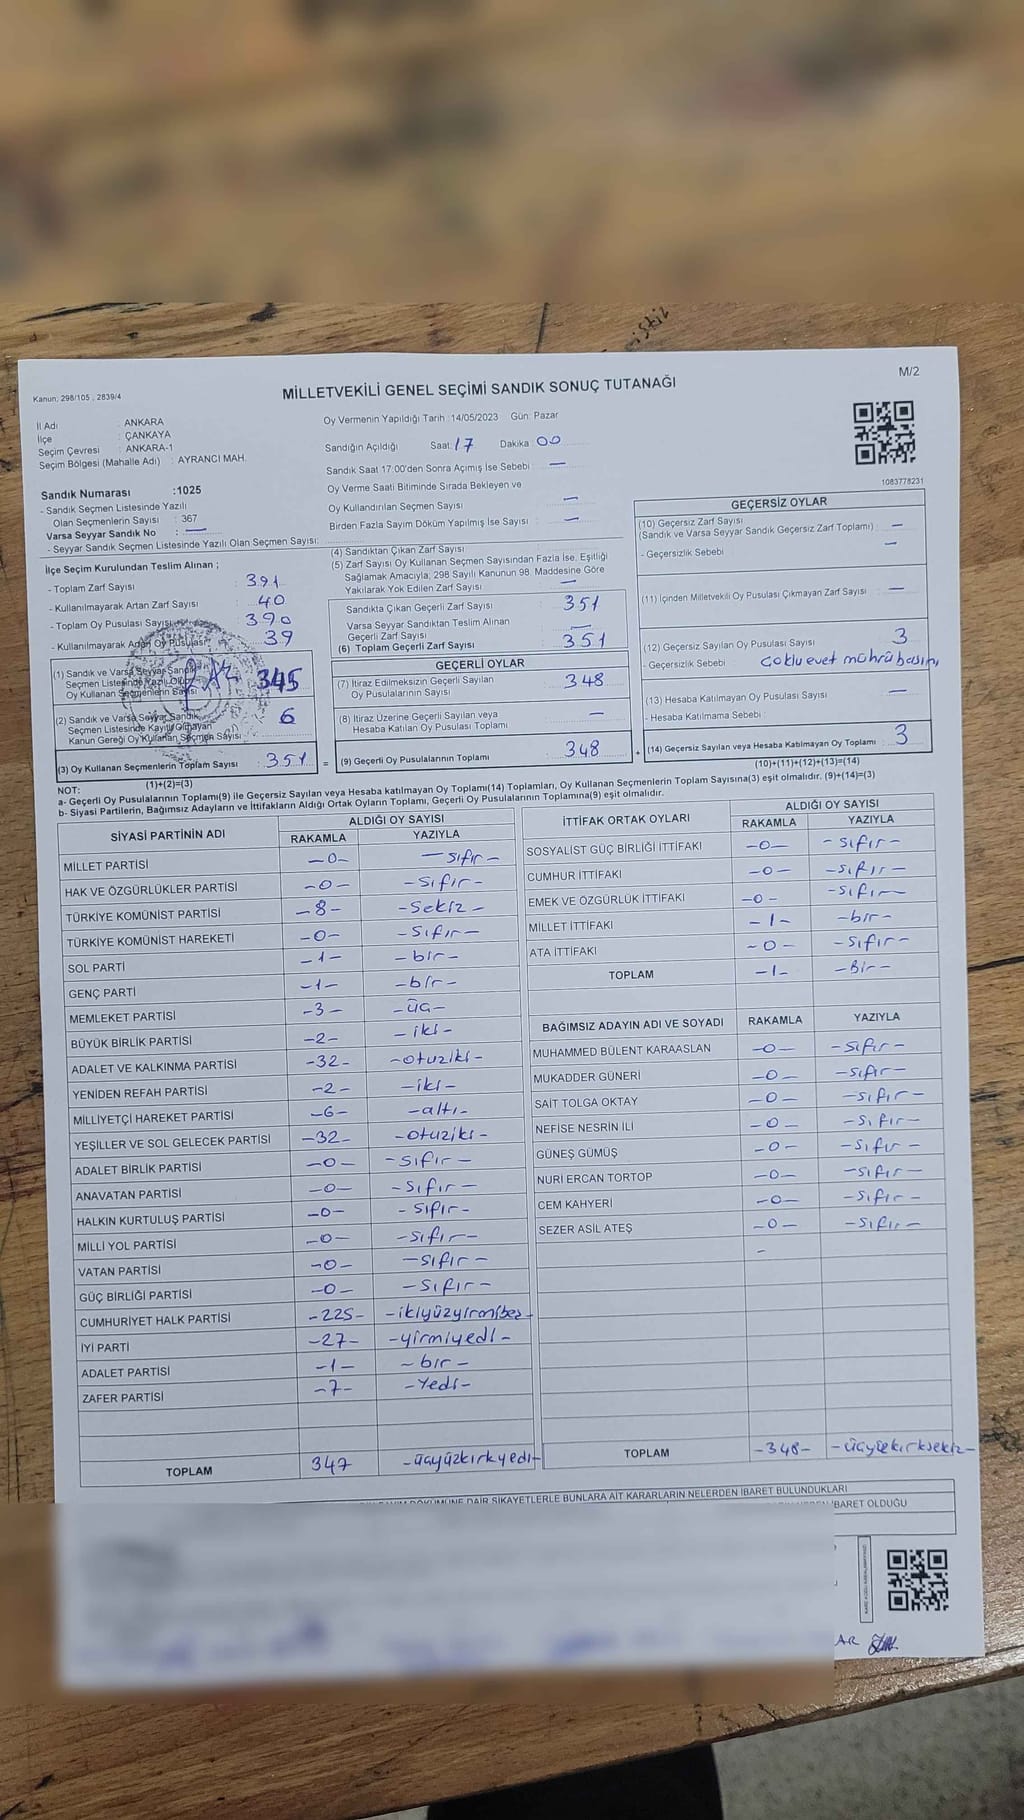 işiniz
Kanun; 298/105 , 2839/4
MİLLETVEKİLİ GENEL SEÇİMİ SANDIK SONUÇ TUTANAĞI
M/2
İl Adı : ANKARA
İlçe : ÇANKAYA
Seçim Çevresi : ANKARA-1
Seçim Bölgesi (Mahalle Adı) : AYRANCI MAH.
Oy Vermenin Yapıldığı Tarih :14/05/2023 Gün: Pazar
Sandığın Açıldığı Saat: 17 Dakika 00
Sandık Saat 17:00'den Sonra Açımış İse Sebebi : —
Oy Verme Saati Bitiminde Sırada Bekleyen ve
Oy Kullandırılan Seçmen Sayısı : —
Birden Fazla Sayım Döküm Yapılmış İse Sayısı : —
1083778231
Sandık Numarası :1025
- Sandık Seçmen Listesinde Yazılı
Olan Seçmenlerin Sayısı : 367
Varsa Seyyar Sandık No : —
- Seyyar Sandık Seçmen Listesinde Yazılı Olan Seçmen Sayısı:
İlçe Seçim Kurulundan Teslim Alınan ;
- Toplam Zarf Sayısı : 391
- Kullanılmayarak Artan Zarf Sayısı : 40
- Toplam Oy Pusulası Sayısı : 390
- Kullanılmayarak Artan Oy Pusulası : 39
(1) Sandık ve Varsa Seyyar Sandık
Seçmen Listesinde Yazılı Olup
Oy Kullanan Seçmenlerin Sayısı 345
(2) Sandık ve Varsa Seyyar Sandık
Seçmen Listesinde Kayıtlı Olmayan
Kanun Gereği Oy Kullanan Seçmen Sayısı : 6
(3) Oy Kullanan Seçmenlerin Toplam Sayısı : 351
(1)+(2)=(3)
(4) Sandıktan Çıkan Zarf Sayısı :
(5) Zarf Sayısı Oy Kullanan Seçmen Sayısından Fazla İse, Eşitliği
Sağlamak Amacıyla; 298 Sayılı Kanunun 98. Maddesine Göre
Yakılarak Yok Edilen Zarf Sayısı : —
Sandıkta Çıkan Geçerli Zarf Sayısı : 351
Varsa Seyyar Sandıktan Teslim Alınan
Geçerli Zarf Sayısı : —
(6) Toplam Geçerli Zarf Sayısı : 351
GEÇERLİ OYLAR
(7) İtiraz Edilmeksizin Geçerli Sayılan
Oy Pusulalarının Sayısı : 348
(8) İtiraz Üzerine Geçerli Sayılan veya
Hesaba Katılan Oy Pusulası Toplamı : —
= (9) Geçerli Oy Pusulalarının Toplamı : 348
GEÇERSİZ OYLAR
(10) Geçersiz Zarf Sayısı
(Sandık ve Varsa Seyyar Sandık Geçersiz Zarf Toplamı) : —
- Geçersizlik Sebebi : —
(11) İçinden Milletvekili Oy Pusulası Çıkmayan Zarf Sayısı : —
(12) Geçersiz Sayılan Oy Pusulası Sayısı : 3
- Geçersizlik Sebebi : Çoklu evet mührü basımı
(13) Hesaba Katılmayan Oy Pusulası Sayısı : —
- Hesaba Katılmama Sebebi :
+ (14) Geçersiz Sayılan veya Hesaba Katılmayan Oy Toplamı : 3
(10)+(11)+(12)+(13)=(14)
NOT:
a- Geçerli Oy Pusulalarının Toplamı(9) ile Geçersiz Sayılan veya Hesaba katılmayan Oy Toplamı(14) Toplamları, Oy Kullanan Seçmenlerin Toplam Sayısına(3) eşit olmalıdır. (9)+(14)=(3)
b- Siyasi Partilerin, Bağımsız Adayların ve İttifakların Aldığı Ortak Oyların Toplamı, Geçerli Oy Pusulalarının Toplamına(9) eşit olmalıdır.
SİYASİ PARTİNİN ADI ALDIĞI OY SAYISI
RAKAMLA YAZIYLA
MİLLET PARTİSİ —0— —sıfır—
HAK VE ÖZGÜRLÜKLER PARTİSİ —0— —sıfır—
TÜRKİYE KOMÜNİST PARTİSİ —8— —sekiz—
TÜRKİYE KOMÜNİST HAREKETİ —0— —sıfır—
SOL PARTİ —1— —bir—
GENÇ PARTİ —1— —bir—
MEMLEKET PARTİSİ —3— —üç—
BÜYÜK BİRLİK PARTİSİ —2— —iki—
ADALET VE KALKINMA PARTİSİ —32— —otuziki—
YENİDEN REFAH PARTİSİ —2— —iki—
MİLLİYETÇİ HAREKET PARTİSİ —6— —altı—
YEŞİLLER VE SOL GELECEK PARTİSİ —32— —otuziki—
ADALET BİRLİK PARTİSİ —0— —sıfır—
ANAVATAN PARTİSİ —0— —sıfır—
HALKIN KURTULUŞ PARTİSİ —0— —sıfır—
MİLLİ YOL PARTİSİ —0— —sıfır—
VATAN PARTİSİ —0— —sıfır—
GÜÇ BİRLİĞİ PARTİSİ —0— —sıfır—
CUMHURİYET HALK PARTİSİ —225— —ikiyüzyirmibeş—
İYİ PARTİ —27— —yirmiyedi—
ADALET PARTİSİ —1— —bir—
ZAFER PARTİSİ —7— —Yedi—
TOPLAM 347 —üçyüzkırkyedi—
İTTİFAK ORTAK OYLARI ALDIĞI OY SAYISI
RAKAMLA YAZIYLA
SOSYALİST GÜÇ BİRLİĞİ İTTİFAKI —0— —sıfır—
CUMHUR İTTİFAKI —0— —sıfır—
EMEK VE ÖZGÜRLÜK İTTİFAKI —0— —sıfır—
MİLLET İTTİFAKI —1— —bir—
ATA İTTİFAKI —0— —sıfır—
TOPLAM —1— —Bir—
BAĞIMSIZ ADAYIN ADI VE SOYADI RAKAMLA YAZIYLA
MUHAMMED BÜLENT KARAASLAN —0— —sıfır—
MUKADDER GÜNERİ —0— —sıfır—
SAİT TOLGA OKTAY —0— —sıfır—
NEFİSE NESRİN İLİ —0— —sıfır—
GÜNEŞ GÜMÜŞ —0— —sıfır—
NURİ ERCAN TORTOP —0— —sıfır—
CEM KAHYERİ —0— —sıfır—
SEZER ASİL ATEŞ —0— —sıfır—
TOPLAM —348— —üçyüzkırksekiz—
DÖKÜMÜNE DAİR ŞİKAYETLERLE BUNLARA AİT KARARLARIN NELERDEN İBARET BULUNDUKLARI
İBARET OLDUĞU